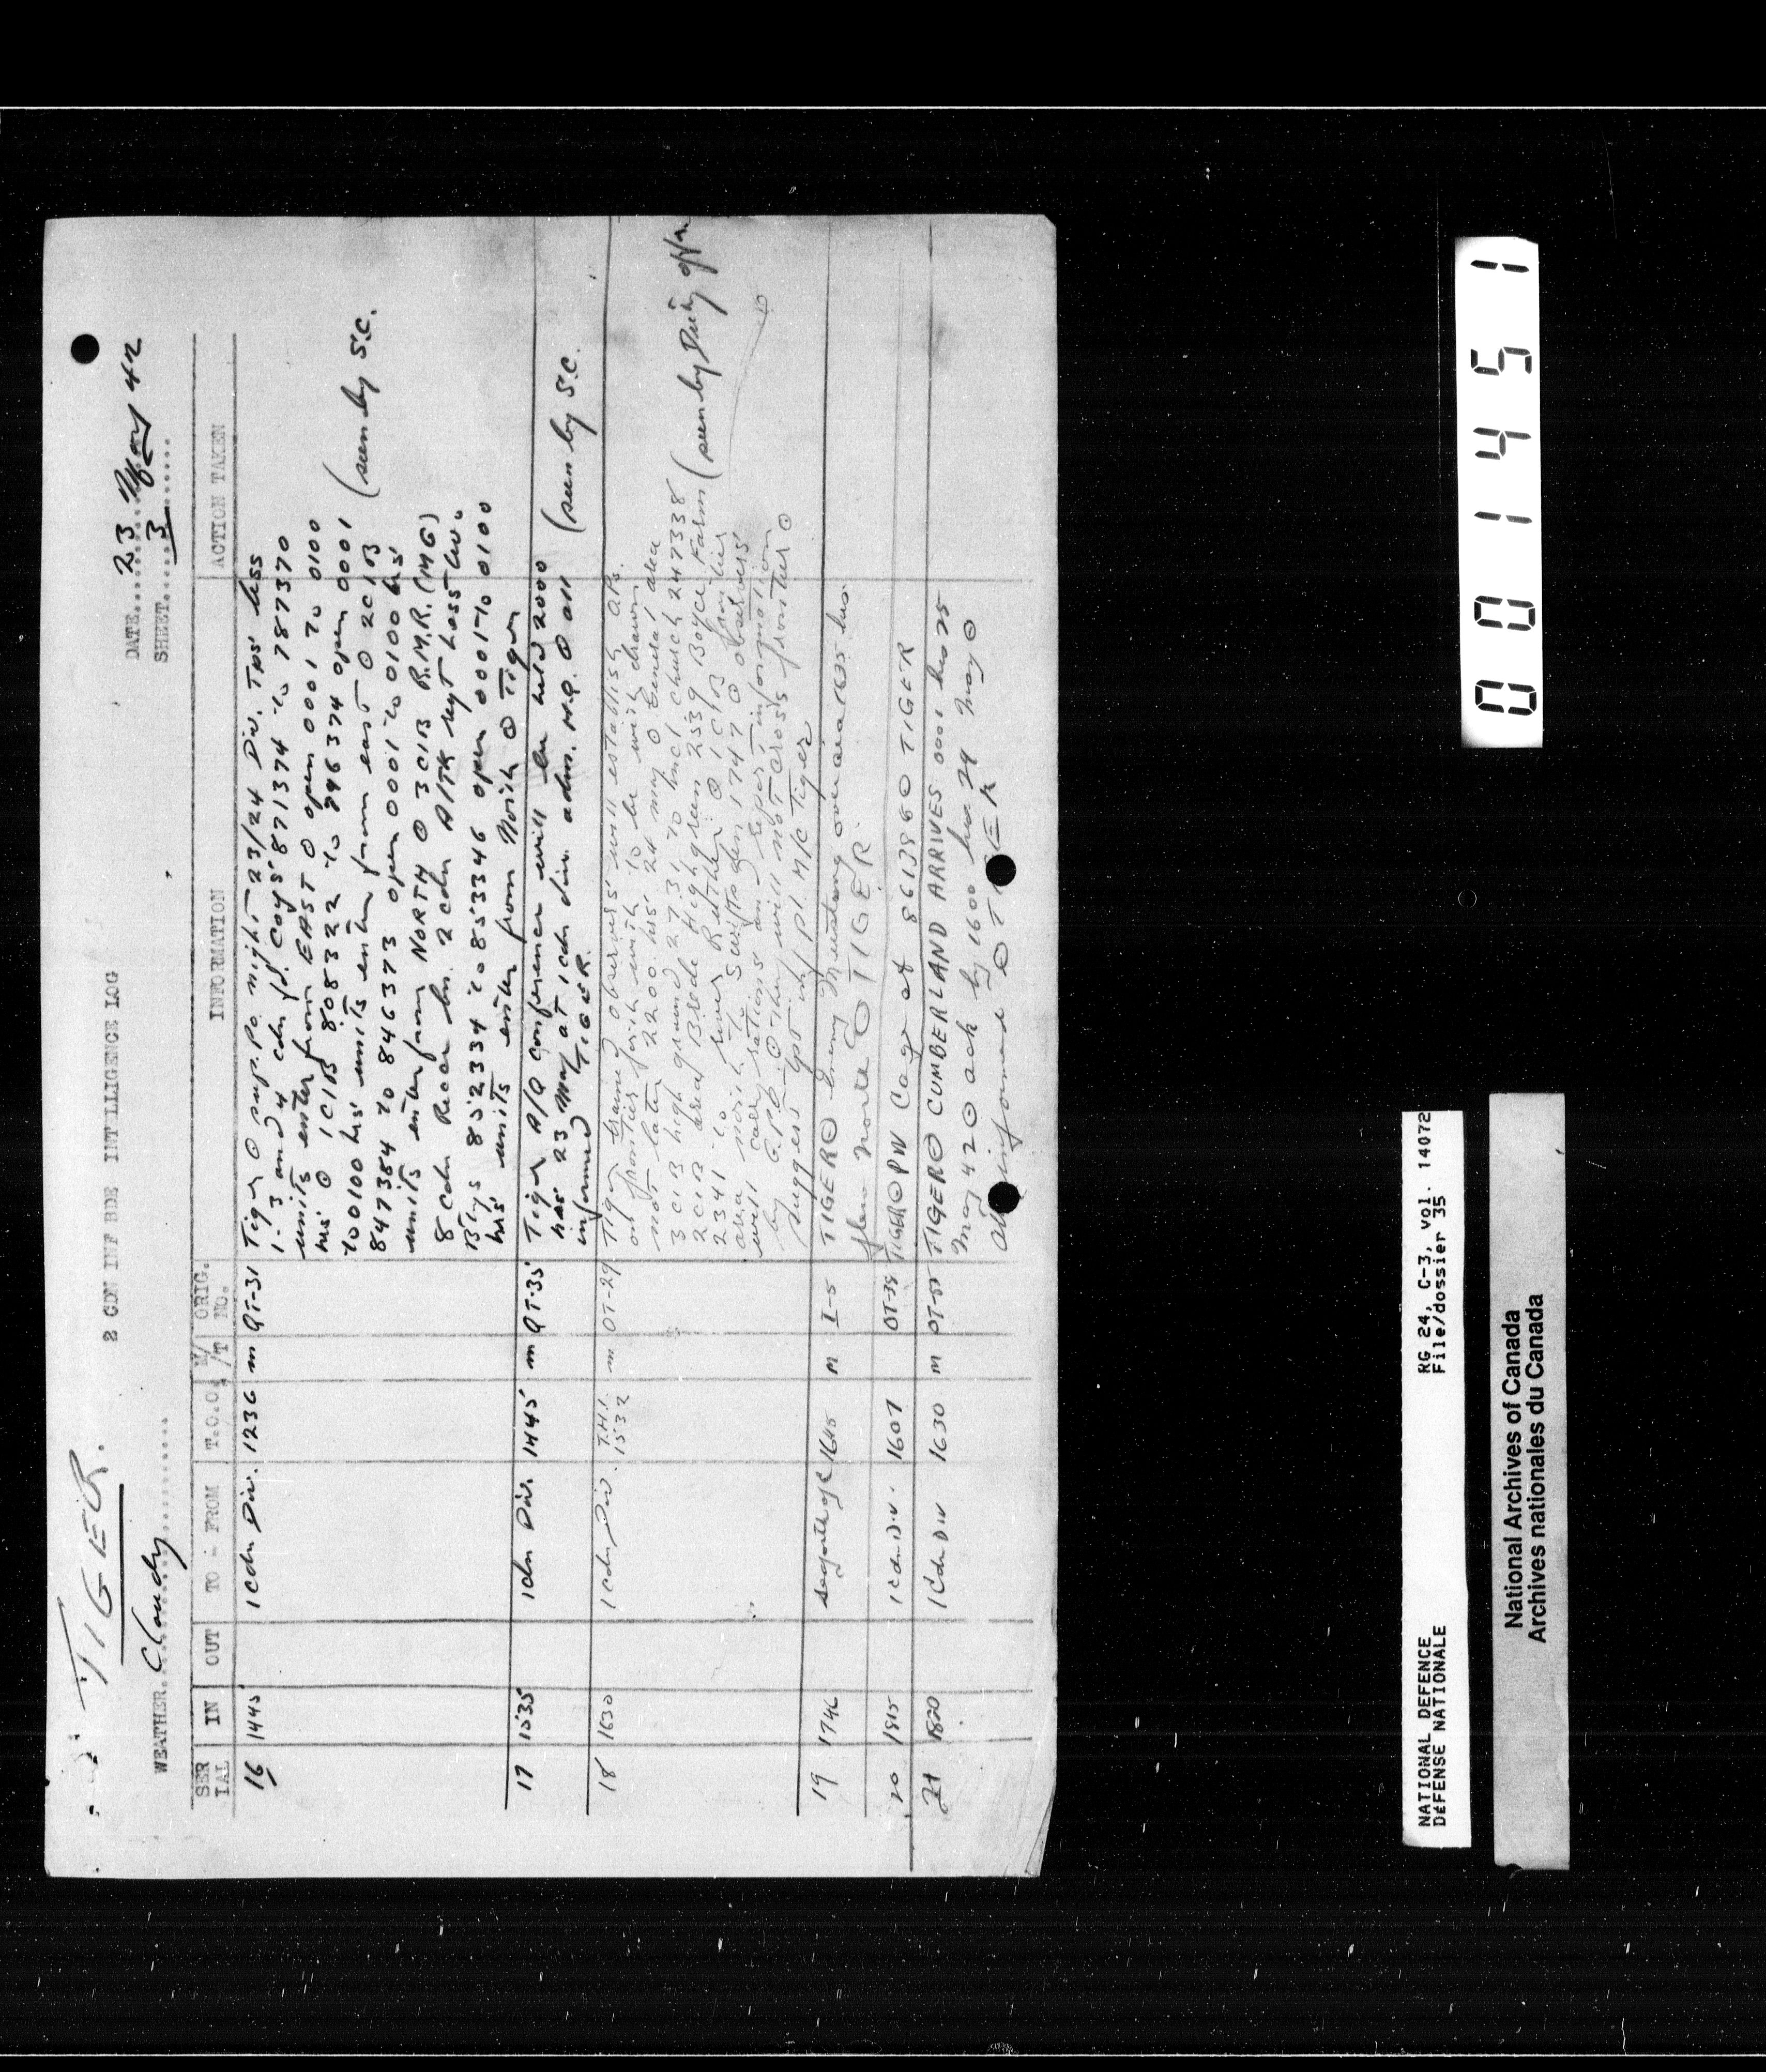 TIGER.
2 CDN INF BDE INTELLIGENCE LOG
DATE....23 May 42
WEATHER. Cloudy
SHEET....3
SER IAL | IN | OUT | TO - FROM | T.O.O. | W/ /T | ORIG. NO. | INFORMATION | ACTION TAKEN
16 1445 1 Cdn Div. 1236 m QT-31 Tiger ⊙ sup. po. night 23/24 Div. Tps less
1. 3 and 4 cdn fd. coys 871374 to 787370
units enter from EAST ⊙ open 0001 to 0100
hrs ⊙ 1 CIB 808322 to 796374 open 0001
to 0100 hrs units enter from east ⊙ 2CIB
847354 to 846373 open 0001 to 0100 hrs (seen by S.C.
units enter from NORTH ⊙ 3 CIB R.M.R. (MG)
8 Cdn Recce bn. 2 cdn A/TK regt less two
Btys 852334 to 853346 open 0001 to 0100
hrs units enter from North ⊙ Tiger
17 1535 1 Cdn Div. 1445 m QT-35 Tiger A/Q conference will be held 2000
hrs 23 May at 1 cdn div. adm. H.Q. ⊙ all (seen by S.C.
informed TIGER.
18 1630 1 Cdn Div. T.H.I. 1532 m OT-29 Tiger trained observers will establish OPs.
on frontier forthwith to be withdrawn
not later 2200 hrs 24 may ⊙ General area
3 CIB high ground 2731 to incl church 247338
2CIB area Brede High green 2539 Boyce Farm (seen by Duty offr.
2341 to river Rother ⊙ 1 CIB frontier
area north to Swiftsden 1747 ⊙ observers
will carry rations and report information
by G.P.O. ⊙ they will not cross frontier ⊙
suggest Tpt inf pl. M/C Tiger
19 1746 1645 M I-5 TIGER ⊙ Enemy Mustang over area 1635 hrs.
flew North ⊙ TIGER.
20 1815 1 Cdn Div. 1607 OT-39 TIGER ⊙ PW Cage at TIGER
21 1820 1 Cdn Div 1630 M TIGER ⊙ CUMBERLAND ARRIVES 0001 hrs 25
May 42 ⊙ ack by 1600 hrs 24 May ⊙
all informed ⊙ TIGER
001451
NATIONAL DEFENCE
DÉFENSE NATIONALE
RG 24, C-3, vol. 14072
File/dossier 35
National Archives of Canada
Archives nationales du Canada